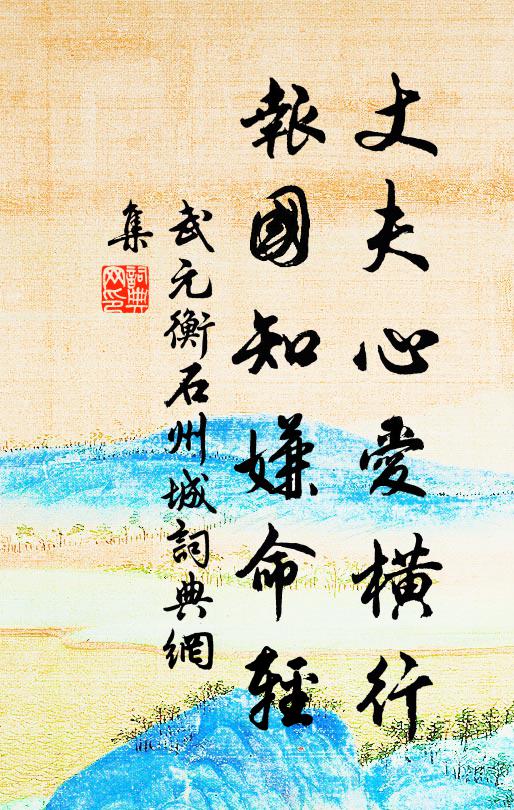 丈夫心愛橫行
報國知嫌命輕
武元衡石州城詞典網
集
詞典
网印